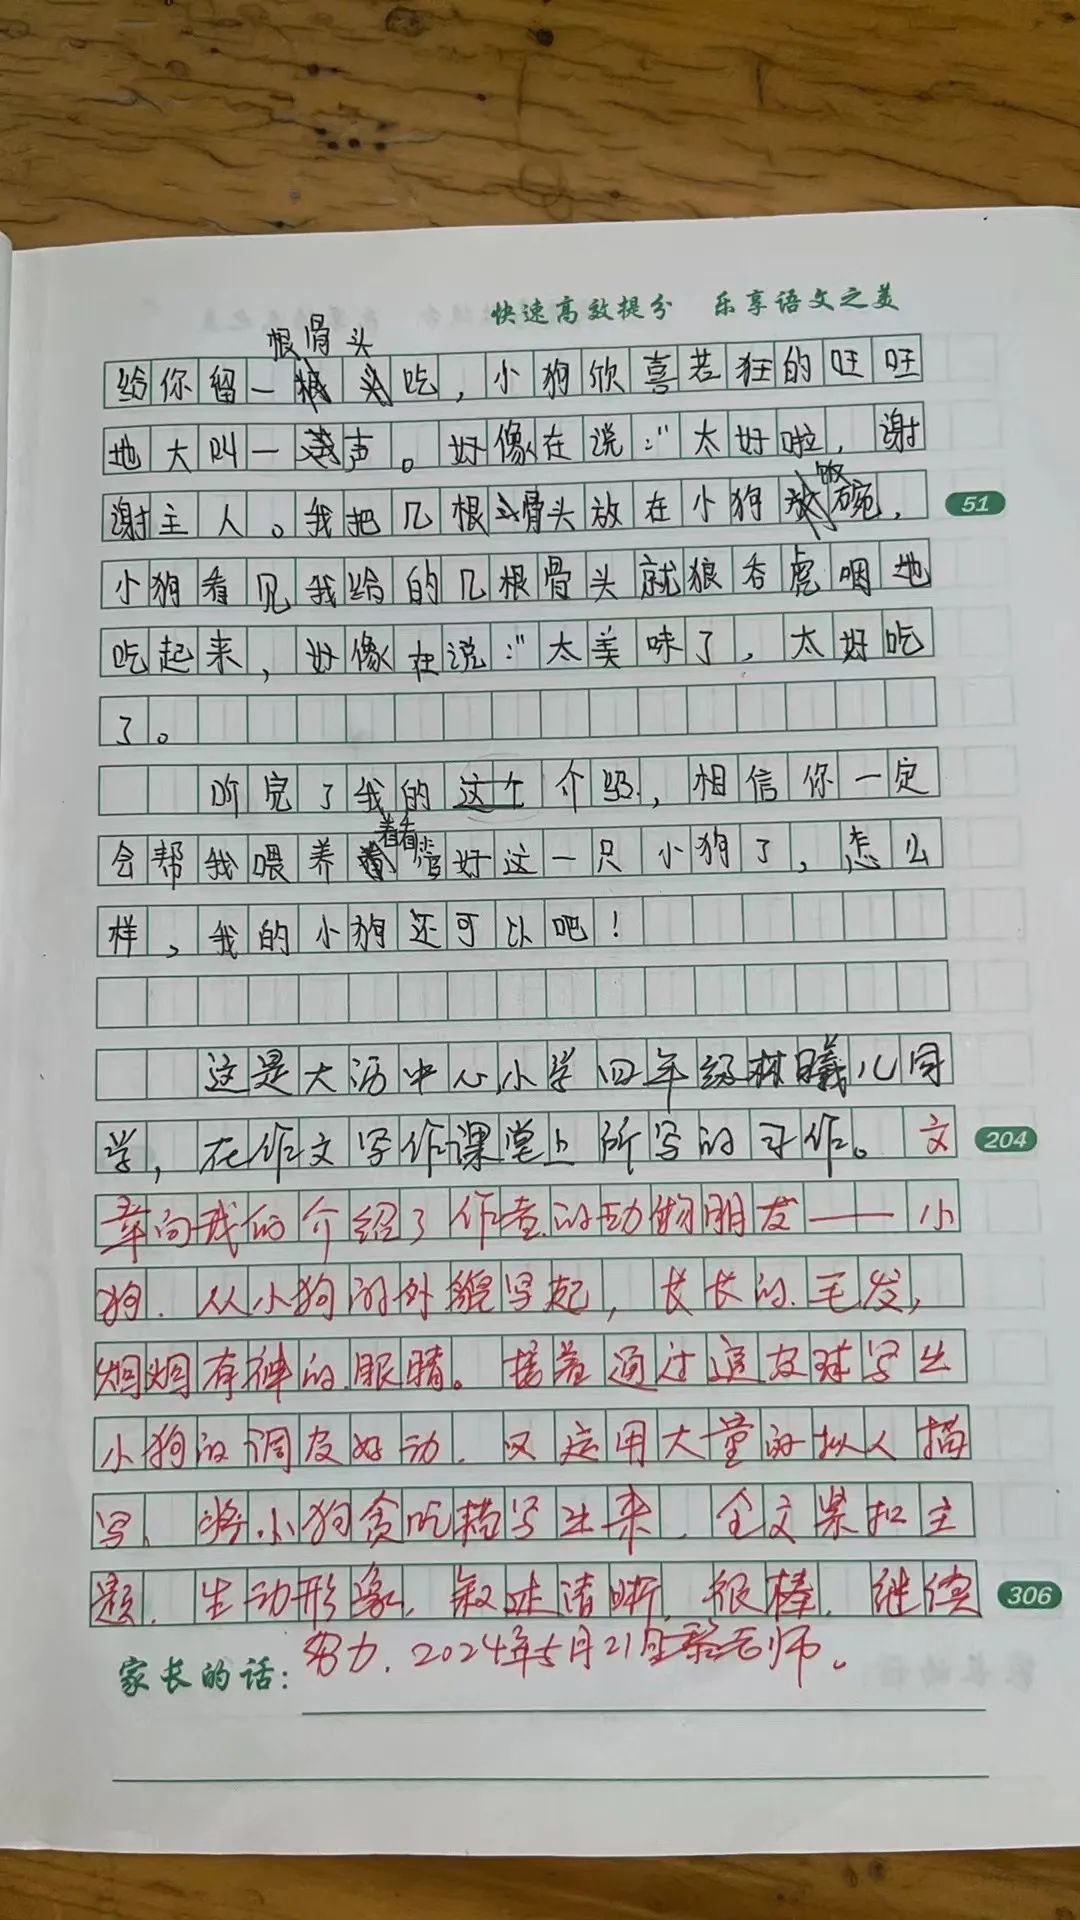 快速高效提分 乐享语文之美
根骨头
给你留一吃，小狗欣喜若狂的旺旺
地大叫一声。好像在说："太好啦，谢
饭
谢主人。我把几根骨头放在小狗碗，
51
小狗看见我给的几根骨头就狼吞虎咽地
吃起来，好像在说："太美味了，太好吃
了。
听完了我的这个介绍，相信你一定
着看
会帮我喂养好这一只小狗了，怎么
样，我的小狗还可以吧！
这是大沥中心小学四年级林曦儿同
学，在作文写作课堂上所写的习作。文
204
章向我们介绍了作者的动物朋友——小
狗．从小狗的外貌写起，长长的．毛发，
炯炯有神的眼睛。接着通过追皮球写出
小狗的调皮好动．又运用大量的拟人描
写、将小狗贪吃描写出来．全文紧扣主
题．生动形象．叙述清晰．很棒．继续
306
努力．2024年5月21日黎老师．
家长的话：